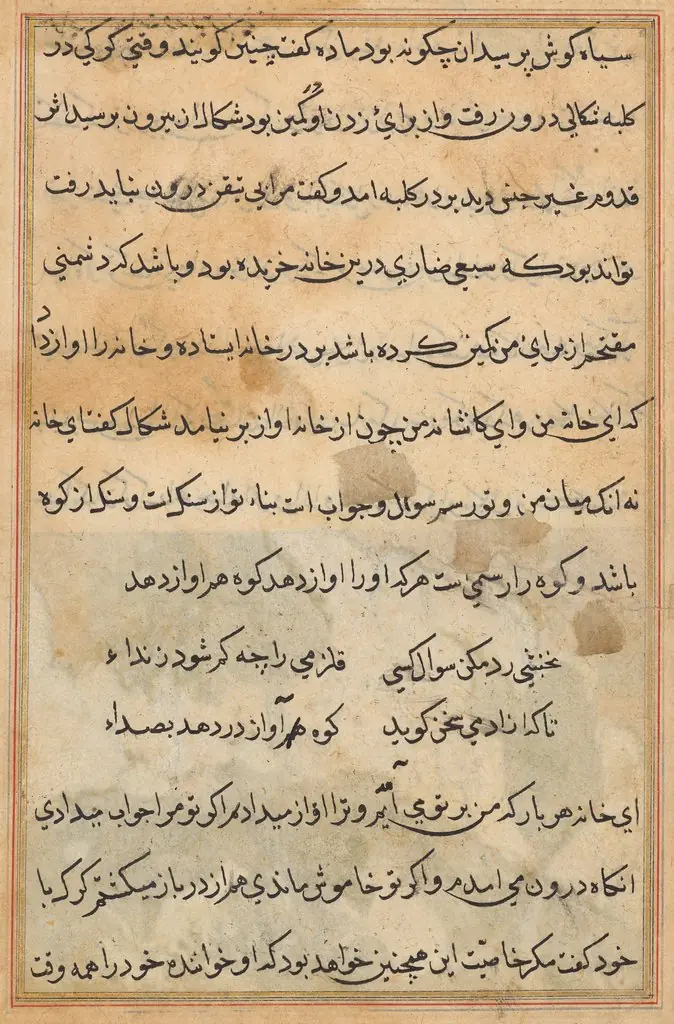 سیاه کوش پرسید ان چکونه بود ماده کفت چنین کویند وقتی کرکی در
کلبه شکالی درون رفت و از برای زدن او در کمین بود شکال از بیرون برسید اثر
قدوم غیر جنس دید بر در کلبه امد و کفت مرا بی تیقن درون نباید رفت
تواند بود که سبعی ضاری درین خانه خزیده بود و باشد که دشمنی
مقتحم از برای من کمین کرده باشد بر در خانه ایستاده و خانه را اواز داد
که ای خانه من و ای کاشانه من چون از خانه اواز بر نیامد شکال کفت ای خانه
نه انک میان من و تو رسم سوال و جواب است بناء تو از سنک است و سنک از کوه
باشد و کوه را رسمی ست هر که او را اواز دهد کوه هم اواز دهد
نخشبی رد مکن سوال کسی قلزمی را چه کم شود ز نداء
تا که ازادی سخن کوید کوه هم آواز در دهد بصداء
ای خانه هر بار که من بر تو می آیم و ترا اواز میدادم اکر تو مرا جواب میدادی
انکاه درون می امدم و اکر تو خاموش ماندی هم از در باز میکشتم کرک با
خود کفت مکر خاصّیت این همچنین خواهد بود که او خواننده خود را همه وقت